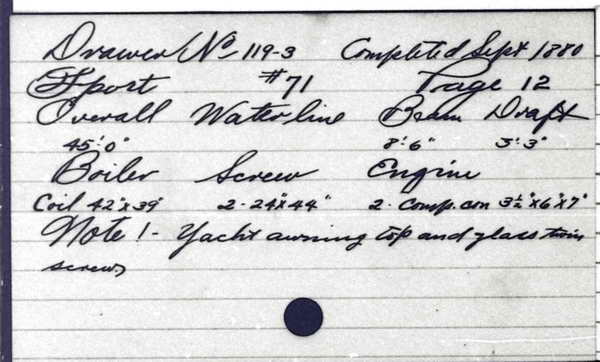 Drawer No 119-3 Completed Sept 1880
Sport #71 Page 12
Overall Waterline Beam Draft
45'0" 8'6" 3'3"
Boiler Screw Engine
Coil 42"x39" 2-24"x44" 2-Comp. con 3½"x6"x7"
Note 1- Yacht awning top and glass twin
screws